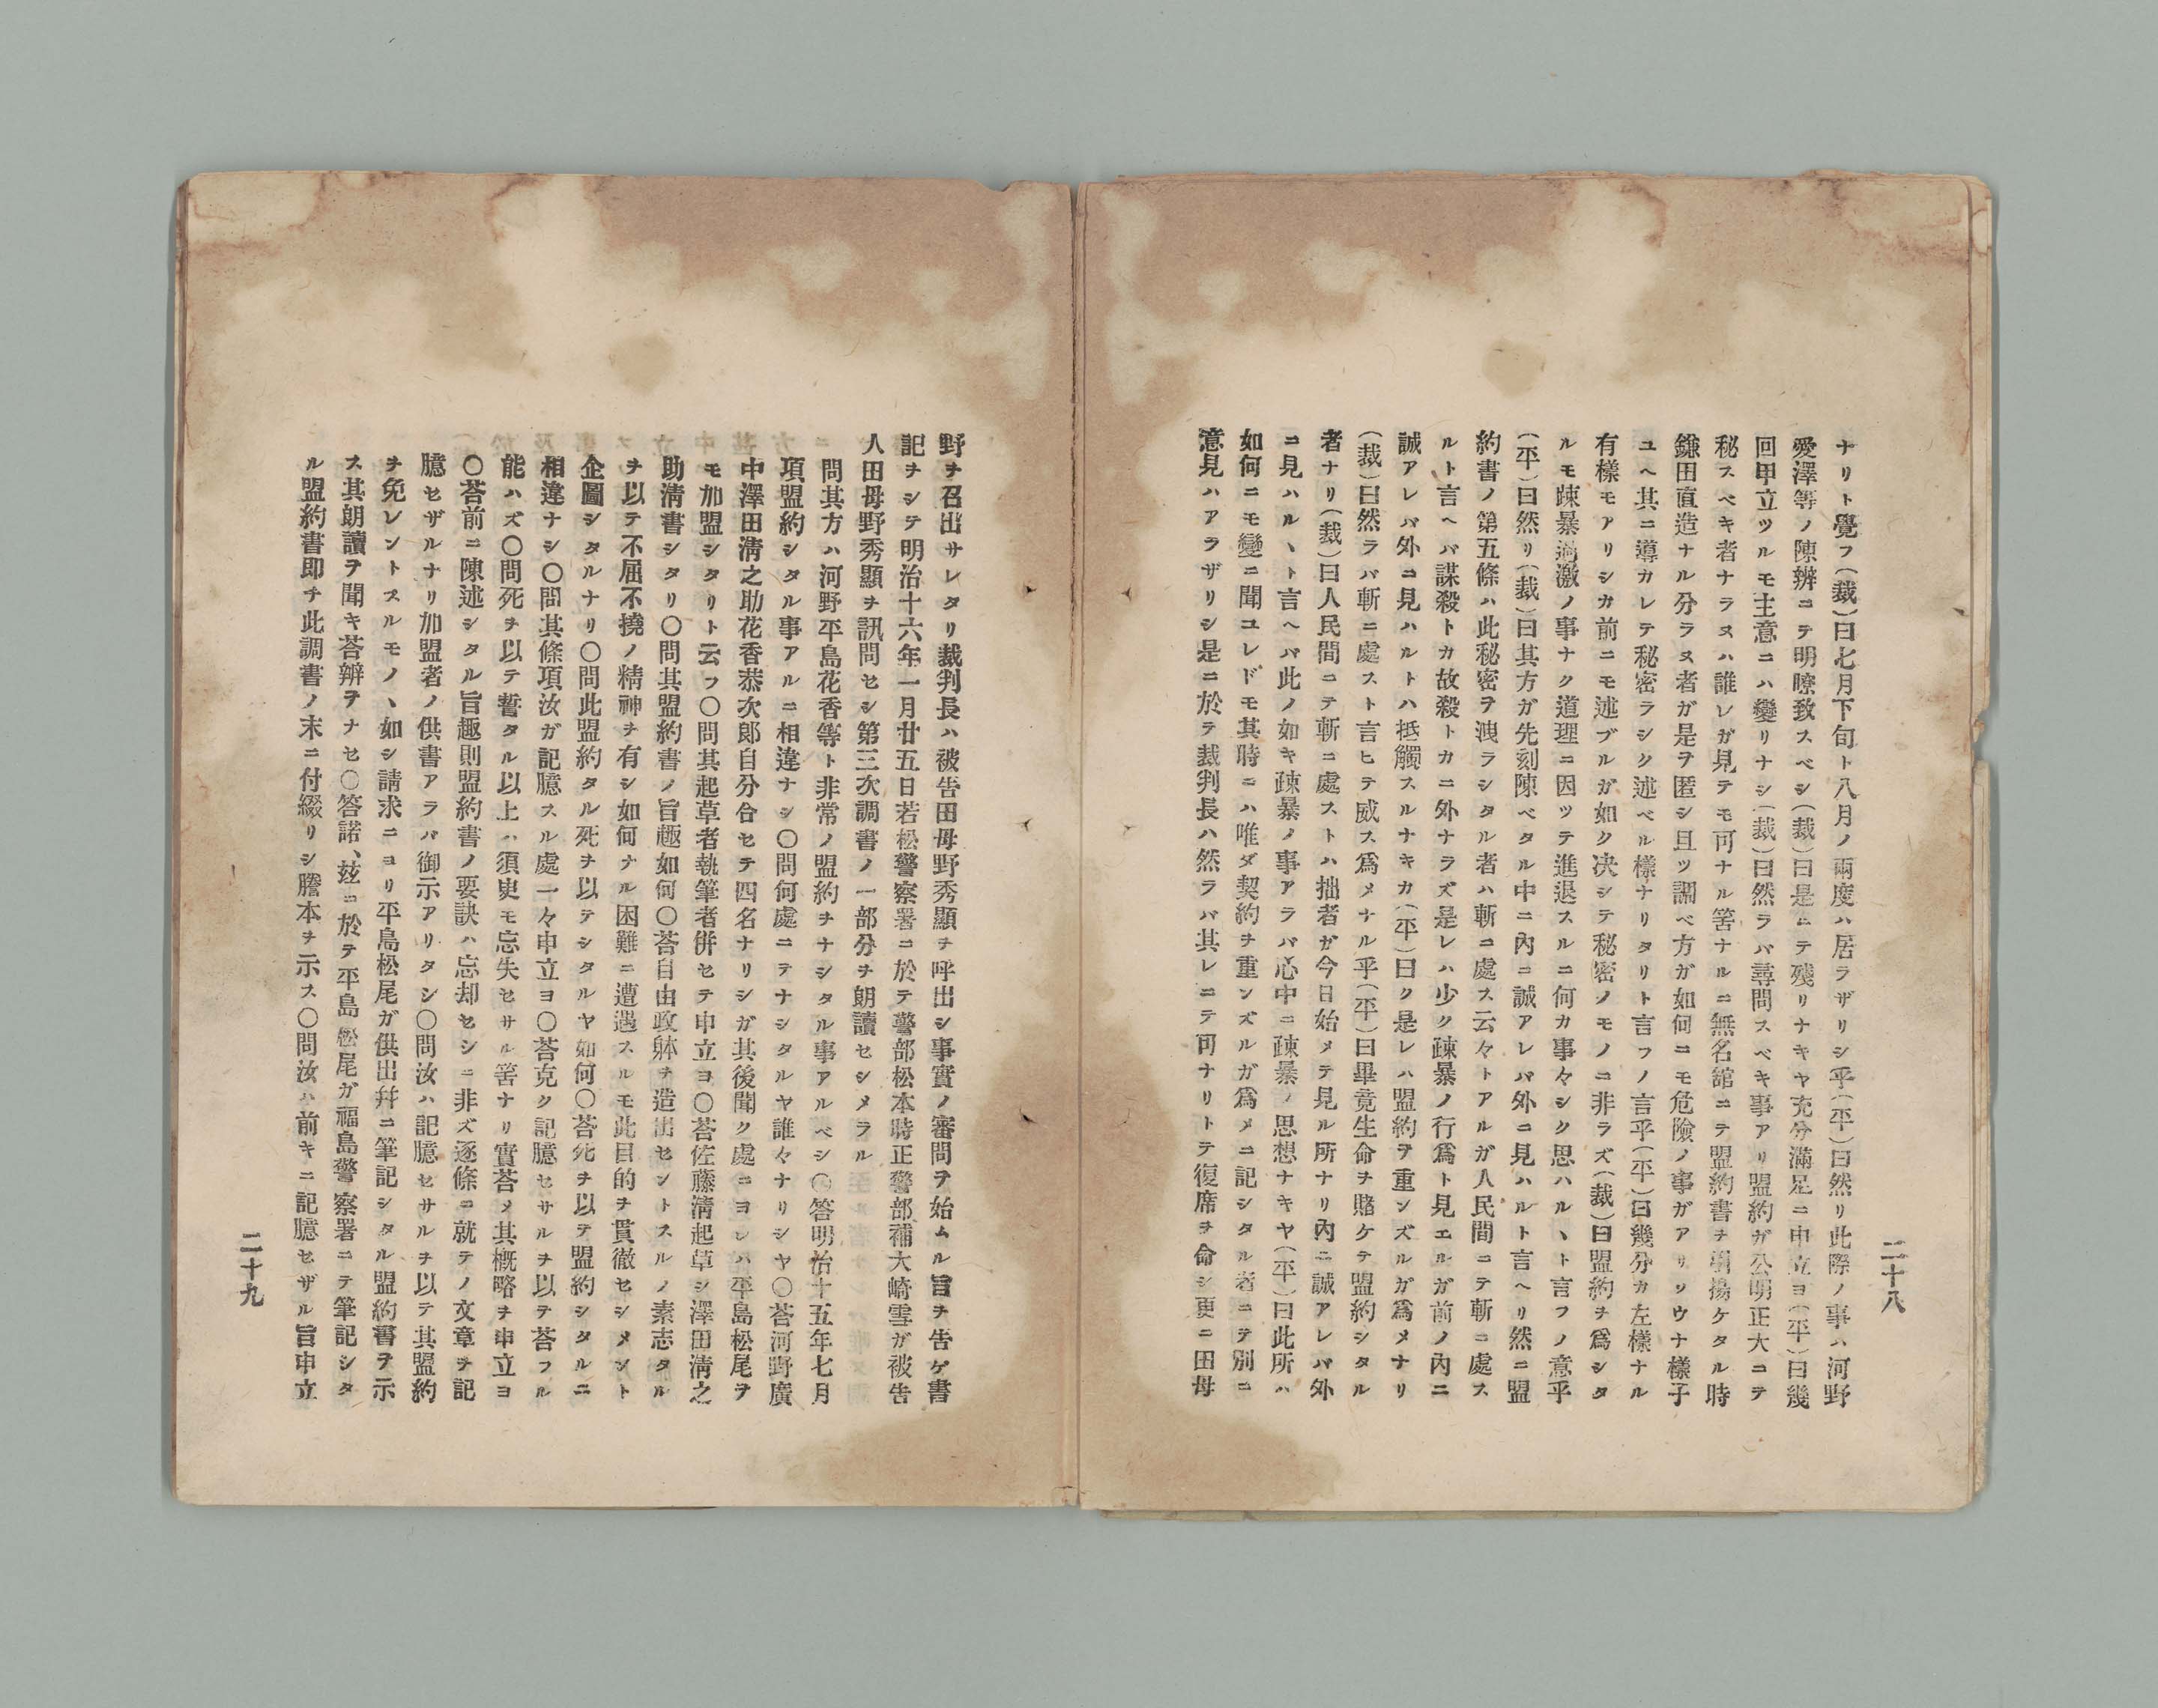 二十八
ナリト覺フ(裁)曰七月下旬ト八月ノ兩度ハ居ラザリシ乎(平)曰然リ此際ノ事ハ河野
愛澤等ノ陳辨ニテ明瞭致スベシ(裁)曰是ニテ殘リナキヤ充分滿足ニ申立ヨ(平)曰幾
回申立ツルモ主意ニハ變リナシ(裁)曰然ラバ尋問スベキ事アリ盟約ガ公明正大ニテ
秘スベキ者ナラヌハ誰レガ見テモ可ナル筈ナルニ無名舘ニテ盟約書ヲ引揚ケタル時
鎌田直造ナル分ラヌ者ガ是ヲ匿シ且ツ調ベ方ガ如何ニモ危險ノ事ガアリソウナ樣子
ユヘ其ニ導カレテ秘密ラシク述ベル樣ナリタリト言フノ言乎(平)曰幾分カ左樣ナル
有樣モアリシカ前ニモ述ブルガ如ク决シテ秘密ノモノニ非ラズ(裁)曰盟約ヲ爲シタ
ルモ疎暴過激ノ事ナク道理ニ因ツテ進退スルニ何カ事々シク思ハルヽト言フノ意乎
(平)曰然リ(裁)曰其方ガ先刻陳ベタル中ニ內ニ誠アレバ外ニ見ハルト言ヘリ然ニ盟
約書ノ第五條ハ此秘密ヲ洩ラシタル者ハ斬ニ處ス云々トアルガ人民間ニテ斬ニ處ス
ルト言ヘバ謀殺トカ故殺トカニ外ナラズ是レハ少ク疎暴ノ行爲ト見エルガ前ノ內ニ
誠アレバ外ニ見ハルトハ抵觸スルナキカ(平)曰ク是レハ盟約ヲ重ンズルガ爲メナリ
(裁)曰然ラバ斬ニ處スト言ヒテ威ス爲メナル乎(平)曰畢竟生命ヲ賭ケテ盟約シタル
者ナリ(裁)曰人民間ニテ斬ニ處ストハ拙者ガ今日始メテ見ル所ナリ內ニ誠アレバ外
ニ見ハルヽト言ヘバ此ノ如キ疎暴ノ事アラバ心中ニ疎暴ノ思想ナキヤ(平)曰此所ハ
如何ニモ變ニ聞ユレドモ其時ニハ唯ダ契約ヲ重ンズルガ爲メニ記シタル者ニテ別ニ
意見ハアラザリシ是ニ於テ裁判長ハ然ラバ其レニテ可ナリトテ復席ヲ命シ更ニ田母
野ヲ召出サレタリ裁判長ハ被告田母野秀顯ヲ呼出シ事實ノ審問ヲ始ムル旨ヲ告ケ書
記ヲシテ明治十六年一月廿五日若松警察署ニ於テ警部松本時正警部補大崎雪ガ被告
人田母野秀顯ヲ訊問セシ第三次調書ノ一部分ヲ朗讀セシメラル
問其方ハ河野平島花香等ト非常ノ盟約ヲナシタル事アルベシ〇答明治十五年七月
項盟約シタル事アルニ相違ナシ〇問何處ニテナシタルヤ誰々ナリシヤ〇荅河野廣
中澤田淸之助花香恭次郞自分合セテ四名ナリシガ其後聞ク處ニヨレハ平島松尾ヲ
モ加盟シタリト云フ〇問其起草者執筆者併セテ申立ヨ〇荅佐藤淸起草シ澤田淸之
助淸書シタリ〇問其盟約書ノ旨趣如何〇荅自由政躰ヲ造出セントスルノ素志タル
ヲ以テ不屈不撓ノ精神ヲ有シ如何ナル困難ニ遭遇スルモ此目的ヲ貫徹セシメント
企圖シタルナリ〇問此盟約タル死ヲ以テシタルヤ如何〇荅死ヲ以テ盟約シタルニ
相違ナシ〇問其條項汝ガ記臆スル處一々申立ヨ〇荅克ク記臆セサルヲ以テ荅フル
能ハズ〇問死ヲ以テ誓タル以上ハ須臾モ忘失セサル筈ナリ實荅メ其槪略ヲ申立ヨ
〇荅前ニ陳述シタル旨趣則盟約書ノ要訣ハ忘却セシニ非ズ逐條ニ就テノ文章ヲ記
臆セザルナリ加盟者ノ供書アラバ御示アリタシ〇問汝ハ記臆セサルヲ以テ其盟約
ヲ免レントスルモノヽ如シ請求ニヨリ平島松尾ガ供出幷ニ筆記シタル盟約書ヲ示
ス其朗讀ヲ聞キ荅辨ヲナセ〇答諾、玆ニ於テ平島松尾ガ福島警察署ニテ筆記シタ
ル盟約書即チ此調書ノ末ニ付綴リシ謄本ヲ示ス〇問汝ハ前キニ記臆セザル旨申立
二十九